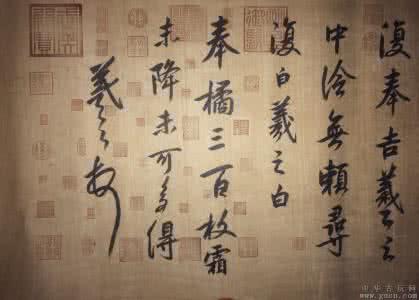 復奉告羲之
中冷無賴尋
復白羲之白
奉橘三百枚霜
未降未可多得
羲之
中华古玩网
www.gucn.com